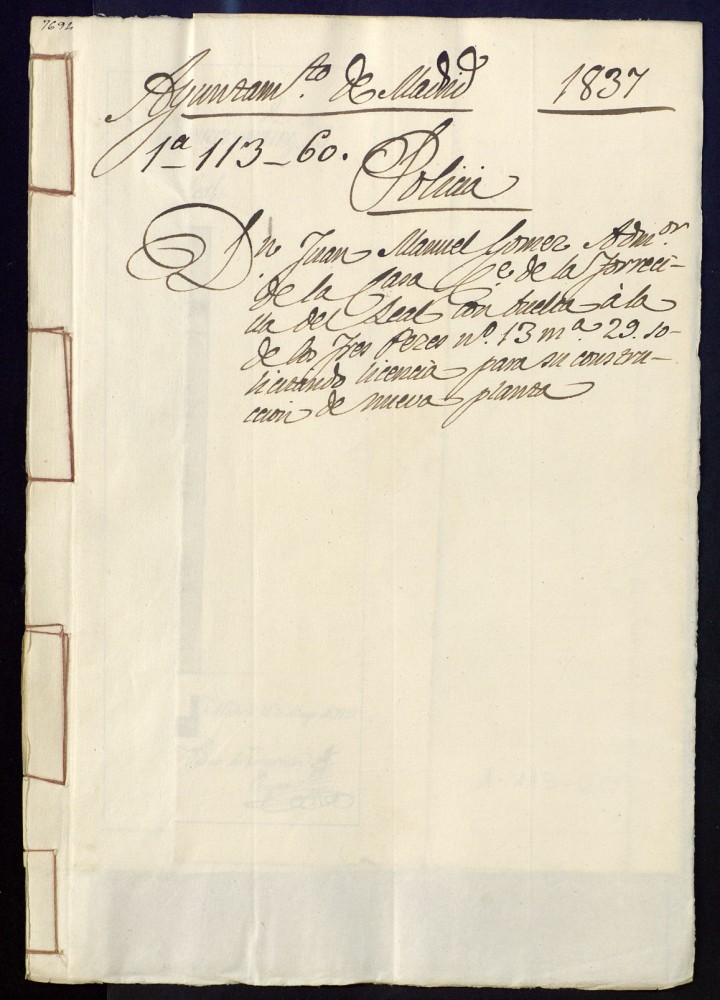 7692
Ayuntam.to de Madrid 1837
1ª 113-60.
Policia
Dn. Juan Manuel Gomez Adm.or
de la Casa C.e de la Torreci-
lla del Leal con buelta à la
de los Tres Peces nº. 13 m.a 29. so-
licitando licencia para su constru-
ccion de nueva planta